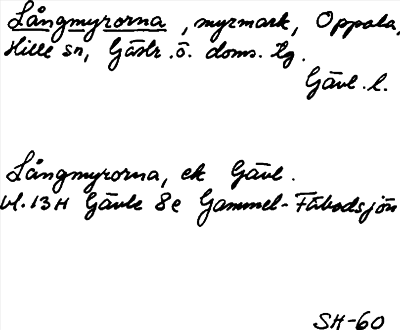 Långmyrorna, myrmark, Oppala,
Hille sn, Gästr. ö. doms. tg.
Gävl. l.
Långmyrorna, ek Gävl.
bl. 13H Gävle 8e Gammel-Fäbodsjön
SH-60